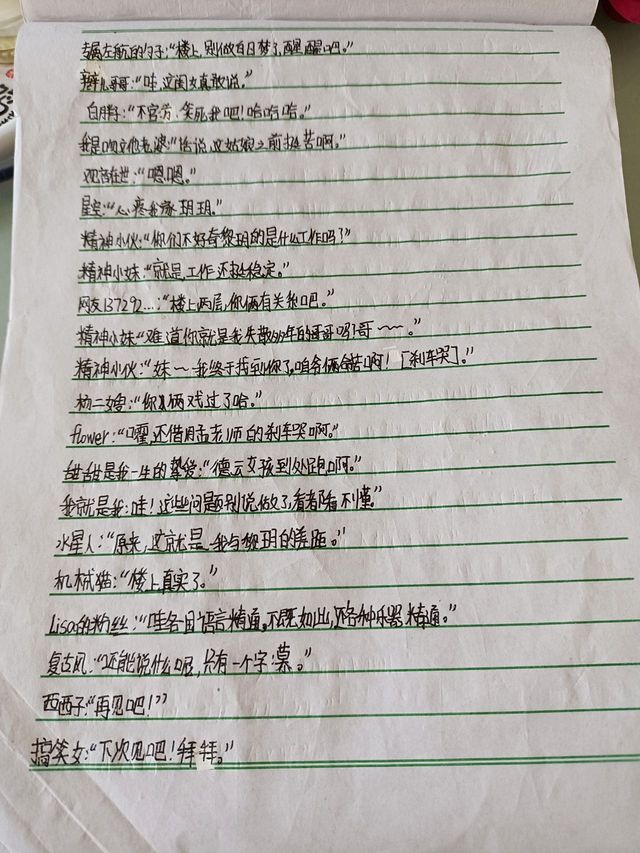 专属左航的勺子:“楼上,别做白日梦了,醒醒吧。”
辫儿哥哥:“哇,这闺女真敢说。”
白胖子:“不官方,笑死我吧!哈哈哈。”
我是 他老婆:“话说,这姑娘之前挺苦啊。”
观音在世:“嗯嗯。”
星空:“心疼我家玥玥。”
精神小伙:“你们不好奇黎玥的是什么工作吗?”
精神小妹:“就是,工作还挺稳定。”
网友137292...:“楼上两层,你俩有关系吧。”
精神小妹“难道你就是我失散多年的哥哥吗!哥~~。”
精神小伙:“妹~我终于找到你了,咱爷俩命苦啊![刹车哭]。”
杨二嫂:“你俩戏过了哈。”
flower:“嚯,还借用孟老师的刹车哭啊。”
甜甜是我一生的挚爱:“德云女孩到处跑啊。”
我就是我:哇!这些问题别说做了,看都看不懂。”
水星人:“原来,这就是我与黎玥的差距。”
机械猫:“楼上真实了。”
Lisa的粉丝:“哇各国语言精通。不既如此,还各种乐器精通。”
复古风:“还能说什么呢,只有一个字:慕。”
西西子:“再见吧!”
搞笑女:“下次见吧!拜拜。”